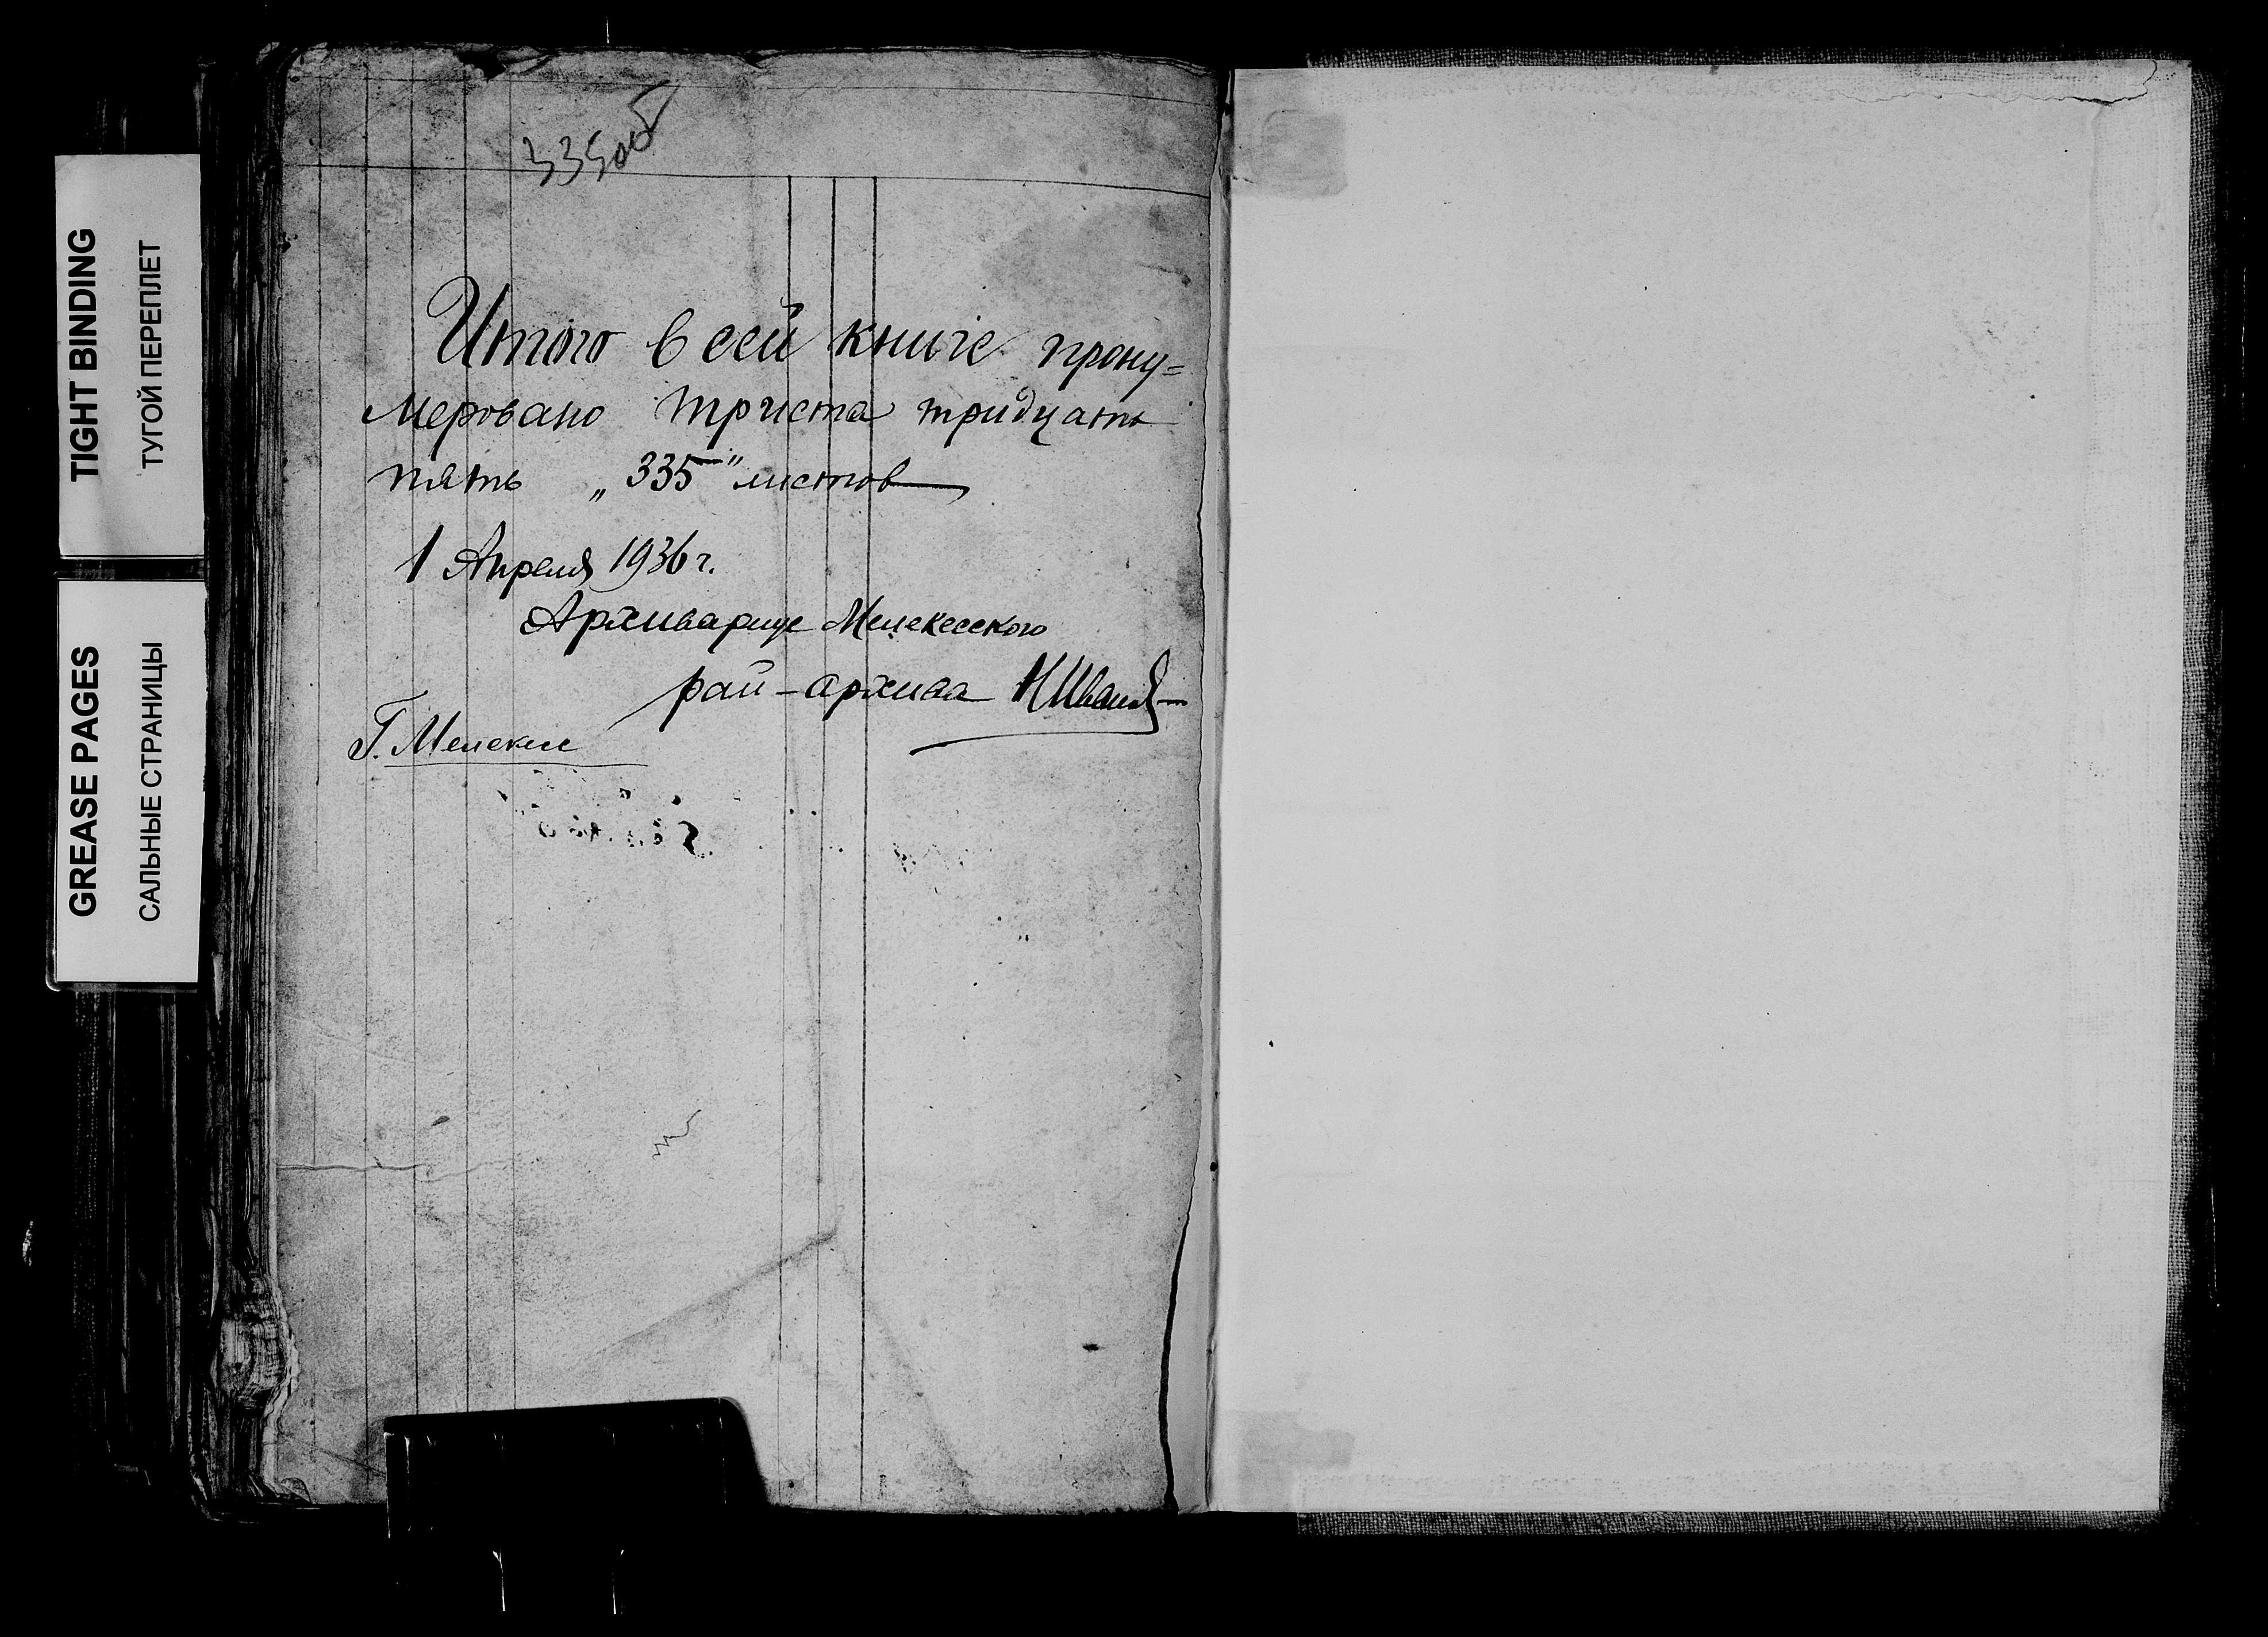 TIGHT BINDING
ТУГОЙ ПЕРЕПЛЕТ
GREASE PAGES
САЛЬНЫЕ СТРАНИЦЫ
335об
Итого в сей книге прону=
меровано триста тридцать
пять „335" листов
1 Апреля 1936 г.
Архивариус Мелекесского
рай-архива
Г. Мелекесс